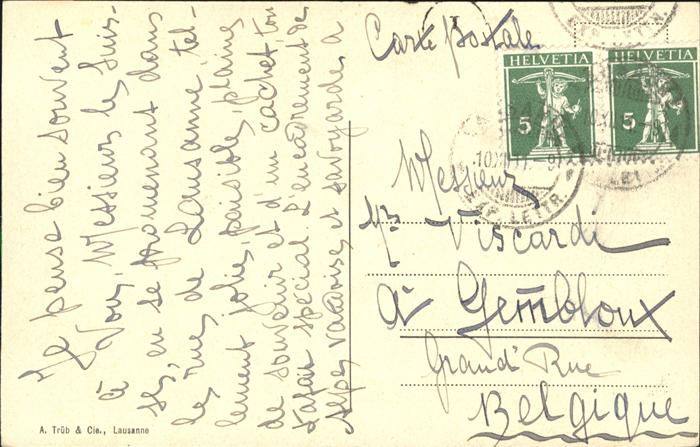 Je pense bien souvent
à vous, Messieurs les Suis-
ses, en se promenant dans
les rues de Lausanne tel-
lement jolies, paisibles, plaines
de souvenir et d'un cachet tout
à fait spécial. L'encadrement des
Alpes vaudoises et savoyardes, a
A. Trüb & Cie., Lausanne
Carte Postale
HELVETIA
5
HELVETIA
5
LETTR.
10.XII.11.
EXP. LETTR.
Messieur
Mr Viscardi
à Gembloux
Grand' Rue
Belgique